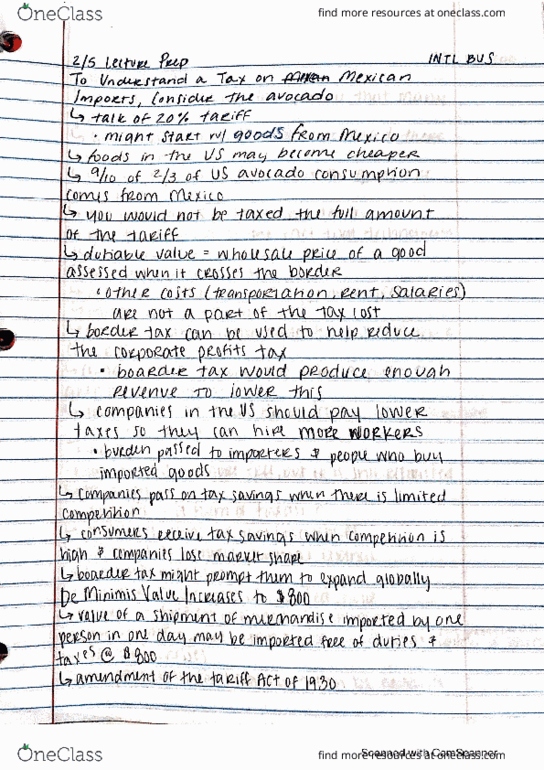 OneClass
find more resources at oneclass.com
2/5 Lecture Prep
INTL BUS
To Understand a Tax on Mexican
Imports, Consider the avocado
↳ talk of 20% tariff
• might start w/ goods from Mexico
↳ foods in the US may become cheaper
↳ 9/10 of 2/3 of US avocado consumption
comes from Mexico
↳ you would not be taxed the full amount
of the tariff
↳ dutiable value = wholesale price of a good
assessed when it crosses the border
• other costs (transportation, rent, salaries)
are not a part of the tax cost
↳ border tax can be used to help reduce
the corporate profits tax
• boarder tax would produce enough
revenue to lower this
↳ companies in the US should pay lower
taxes so they can hire more workers
• burden passed to importers & people who buy
imported goods
↳ companies pass on tax savings when there is limited
competition
↳ consumers receive tax savings when competition is
high & companies lose market share
↳ boarder tax might prompt them to expand globally
De Minimis Value Increases to $800
↳ value of a shipment of merchandise imported by one
person in one day may be imported free of duties &
taxes @ $800
↳ amendment of the tariff Act of 1930
OneClass
find more resources at oneclass.com
Scanned with CamScanner